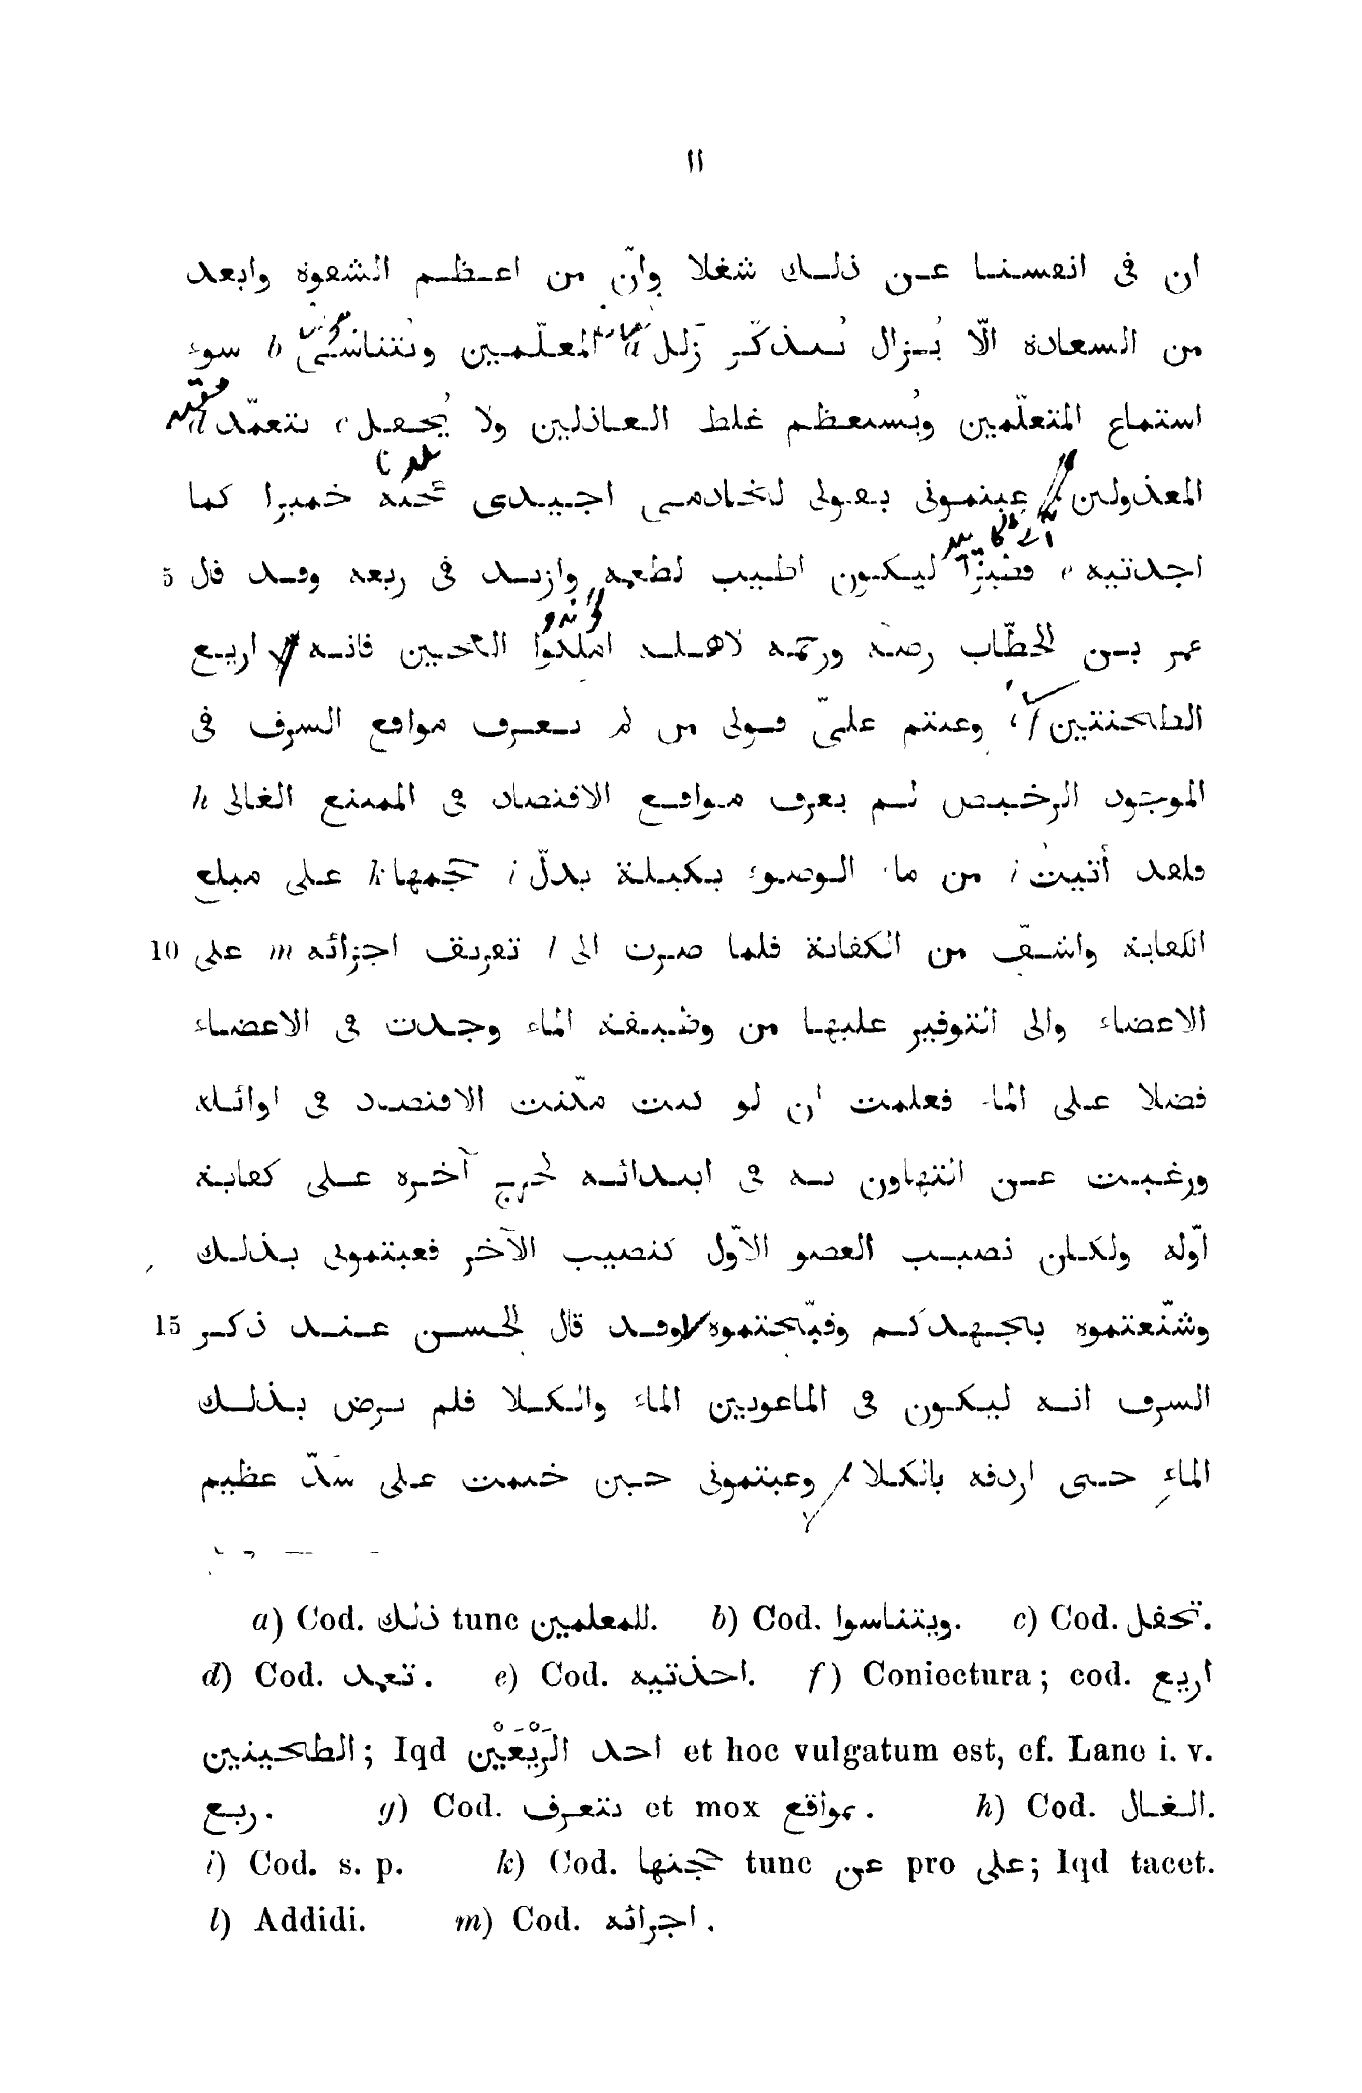 ١١
ان فى انفسنا عن ذلك شغلا وانّ من اعظم الشقوة وابعد
من السعادة الّا يُزال نتذكّر زَلَل a المعلّمين ونُتناسى b سوء
استماع المتعلّمين ونُستعظم غلط العاذلين ولا يُحفل c نتعمّد d
المعذولين عبتمونى بقولى لخادمى اجيدى خميرا كما
اجدتيه e فطيرا ليكون اطيب لطعمه وازيد فى ريعه وقد قال 5
عمر بن الخطّاب رضه ورحمه لاهله املكوا العجين فانه اريع
الطحنتين f وعبتم علىّ قولى من لم يعرف مواقع السرف فى
الموجود الرخيص لم يعرف مواقع الاقتصاد فى الممتنع الغالى h
فلقد أتيتُ i من ماء الوضوء بكيلة يدلّ i حجمها k على مبلغ
الكفاية واشفّ من الكفاية فلما صرت الى l تفريق اجزائه m على 10
الاعضاء والى التوفير عليها من وظيفة الماء وجدت فى الاعضاء
فضلا على الماء فعلمت ان لو كنت مكّنت الاقتصاد فى اوائله
ورغبت عن التهاون به فى ابتدائه لخرج آخره على كفاية
اوّله ولكان نصيب العضو الاوّل كنصيب الآخر فعبتمونى بذلك
وشنّعتموه بجهدكم وقبّحتموه وقد قال الحسن عند ذكر 15
السرف انه ليكون فى الماعونين الماء والكلا فلم يرض بذلك
الماء حتى اردفه بالكلا وعبتمونى حين ختمت على سدّ عظيم
a) Cod. ذلك tunc للمعلمين. b) Cod. ويتناسوا. c) Cod. تحفل.
d) Cod. تعمد. e) Cod. احذتيه. f) Coniectura; cod. اربع
الطحينين; Iqd احد الرَيْعَيْن et hoc vulgatum est, cf. Lane i. v.
ريع. g) Cod. نتعرف et mox بمواقع. h) Cod. الغال.
i) Cod. s. p. k) Cod. حجنها tunc عن pro على; Iqd tacet.
l) Addidi. m) Cod. اجرائه.